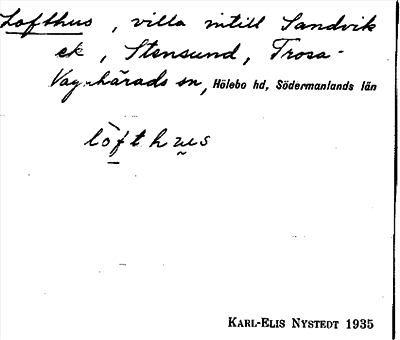 Lofthus, villa intill Sandvik
ek, Stensund, Trosa-
Vagnhärads sn, Hölebo hd, Södermanlands län
lòft hus
KARL-ELIS NYSTEDT 1935